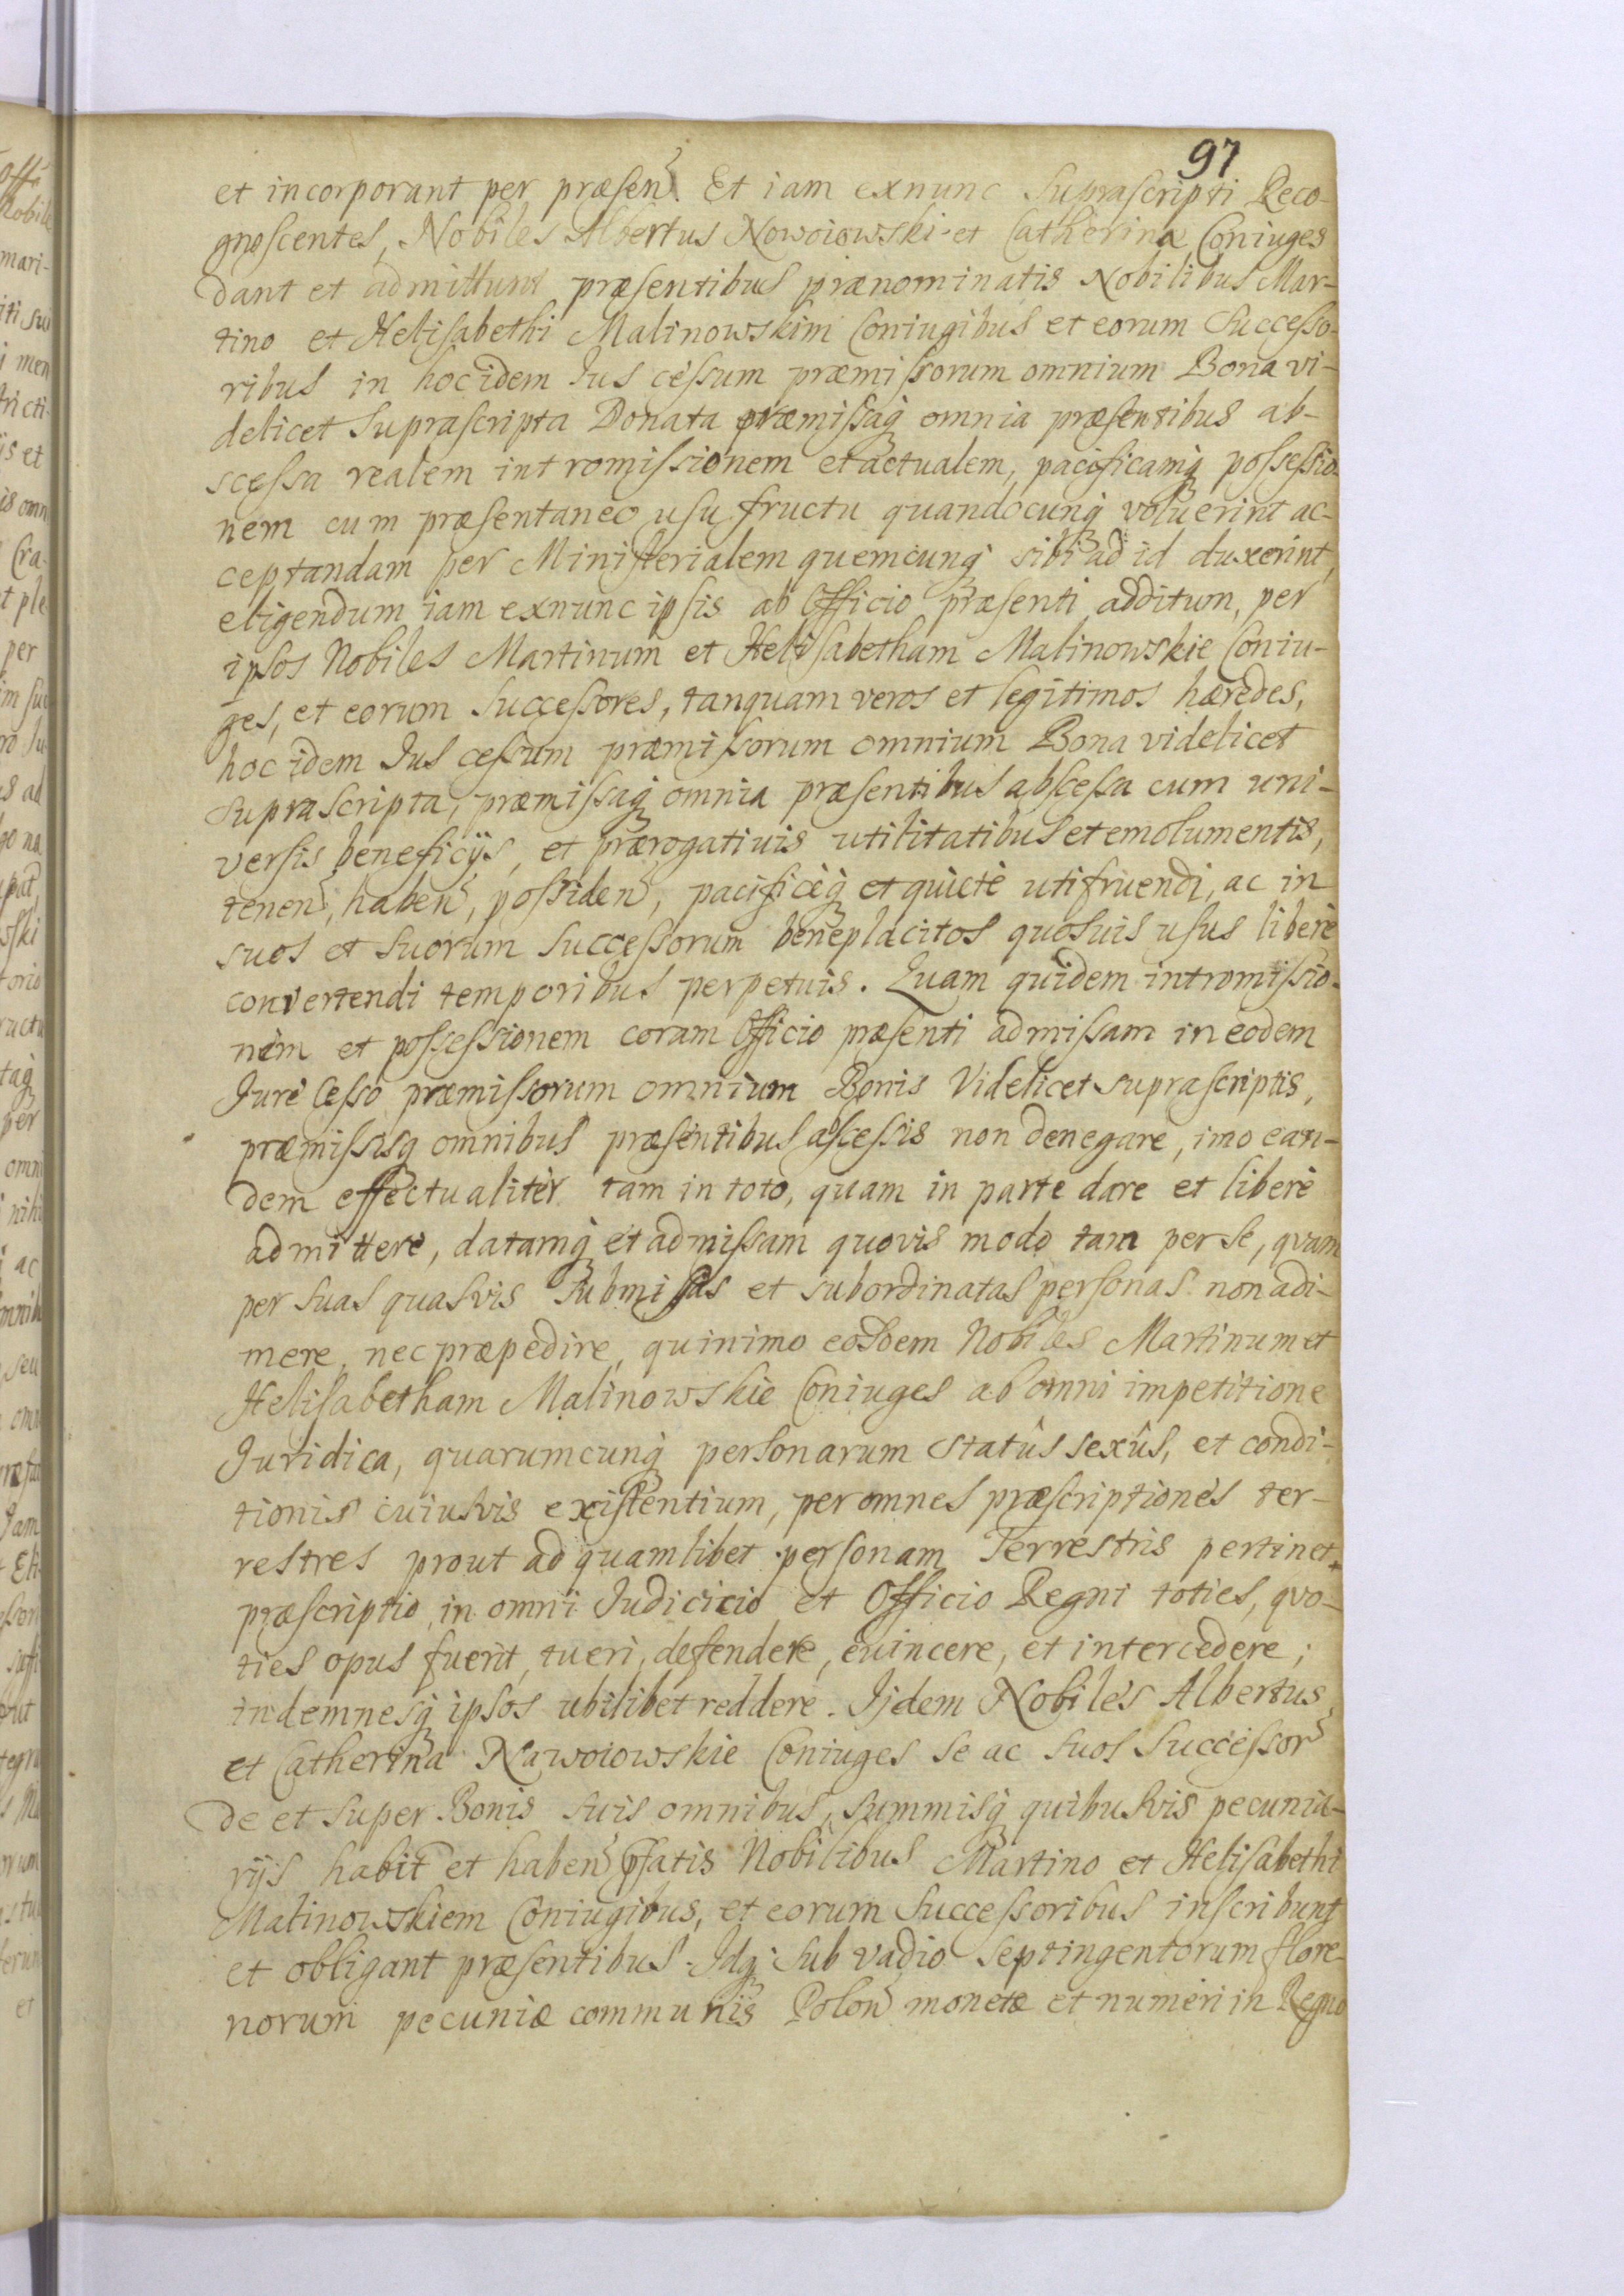 97
et incorporant per præsen. Et iam exnunc Suprascripti Reco-
gnoscentes, Nobiles Albertus Nowoiowski et Catherina Coniuges
dant et admittunt præsentibus prænominatis Nobilibus Mar-
tino et Helisabethi Malinowskim Coniugibus et eorum Successo-
ribus in hoc idem Ius cessum præmissorum omnium Bona vi-
delicet Suprascripta Donata præmissaq omnia præsentibus ab-
scessa realem intromissionem et actualem, pacificamq possessio-
nem cum præsentaneo usu fructu quandocunq voluerint ac-
ceptandam per Ministerialem quemcunq sibi ad id duxerint,
eligendum iam exnunc ipsis ab Officio præsenti additum, per
ipsos Nobiles Martinum et Helisabetham Malinowskie Coniu-
ges, et eorum Successores, tanquam veros et legitimos hæredes,
hoc idem Ius cessum præmissorum omnium Bona videlicet
suprascripta, præmissaq omnia præsentibus abscessa cum uni-
versis beneficijs, et prærogativis utilitatibus et emolumentis,
tenen, haben, possiden, pacificèq et quietè utifruendi, ac in
suos et suorum Successorum beneplacitos quosuis usus liberè
convertendi temporibus perpetuis. Quam quidem intromissio-
nem et possessionem coram Officio præsenti admissam in eodem
Iure Cesso præmissorum omnium Bonis Videlicet suprascriptis,
præmissisq omnibus præsentibus abscessis non denegare, imo ean-
dem effectualiter tam in toto, quam in parte dare et liberè
admittere, datamq et admissam quovis modo tam per se, qvam
per suas quasvis submissas et subordinatas personas non adi-
mere, nec præpedire, quinimo eosdem Nobiles Martinum et
Helisabetham Malinowskie Coniuges ab omni impetitione
Iuridica, quarumcunq personarum statûs sexûs, et condi-
tionis cuiusvis existentium, per omnes præscriptiones ter-
restres prout ad quamlibet personam Terrestris pertinet
præscriptio, in omni Iudicicio et Officio Regni toties, qvo-
ties opus fuerit, tueri, defendere, euincere, et intercedere;
indemnesq ipsos ubilibet reddere. Ijdem Nobiles Albertus
et Catherina Nawoiowskie Coniuges se ac suos Successor
de et super Bonis suis omnibus, summisq quibusvis pecunia-
rijs habit et haben psatis Nobilibus Martino et Helisabethi
Malinowskiem Coniugibus, et eorum Successoribus inscribunt
et obligant præsentibus. Idq sub vadio septingentorum flore-
norum pecuniæ communis Polon monetæ et numeri in Regno